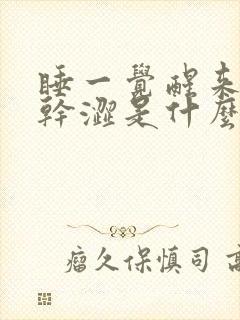 睡一覺醒來
幹澀是什麼
瘤久保慎司